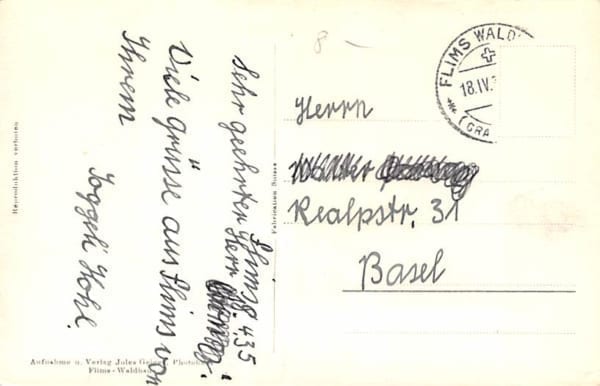 8 –
FLIMS WALD
18.IV.
(GRA
Flims 18.4.35
Sehr geehrter Herr
Viele grüsse aus Flims von
Ihrem
Joggeli Kohl.
Herrn
Walter
Realpstr. 31
Basel
Reproduktion verboten
Fabrication Suisse
Aufnahme u. Verlag Jules Geiger, Photo
Flims-Waldhau